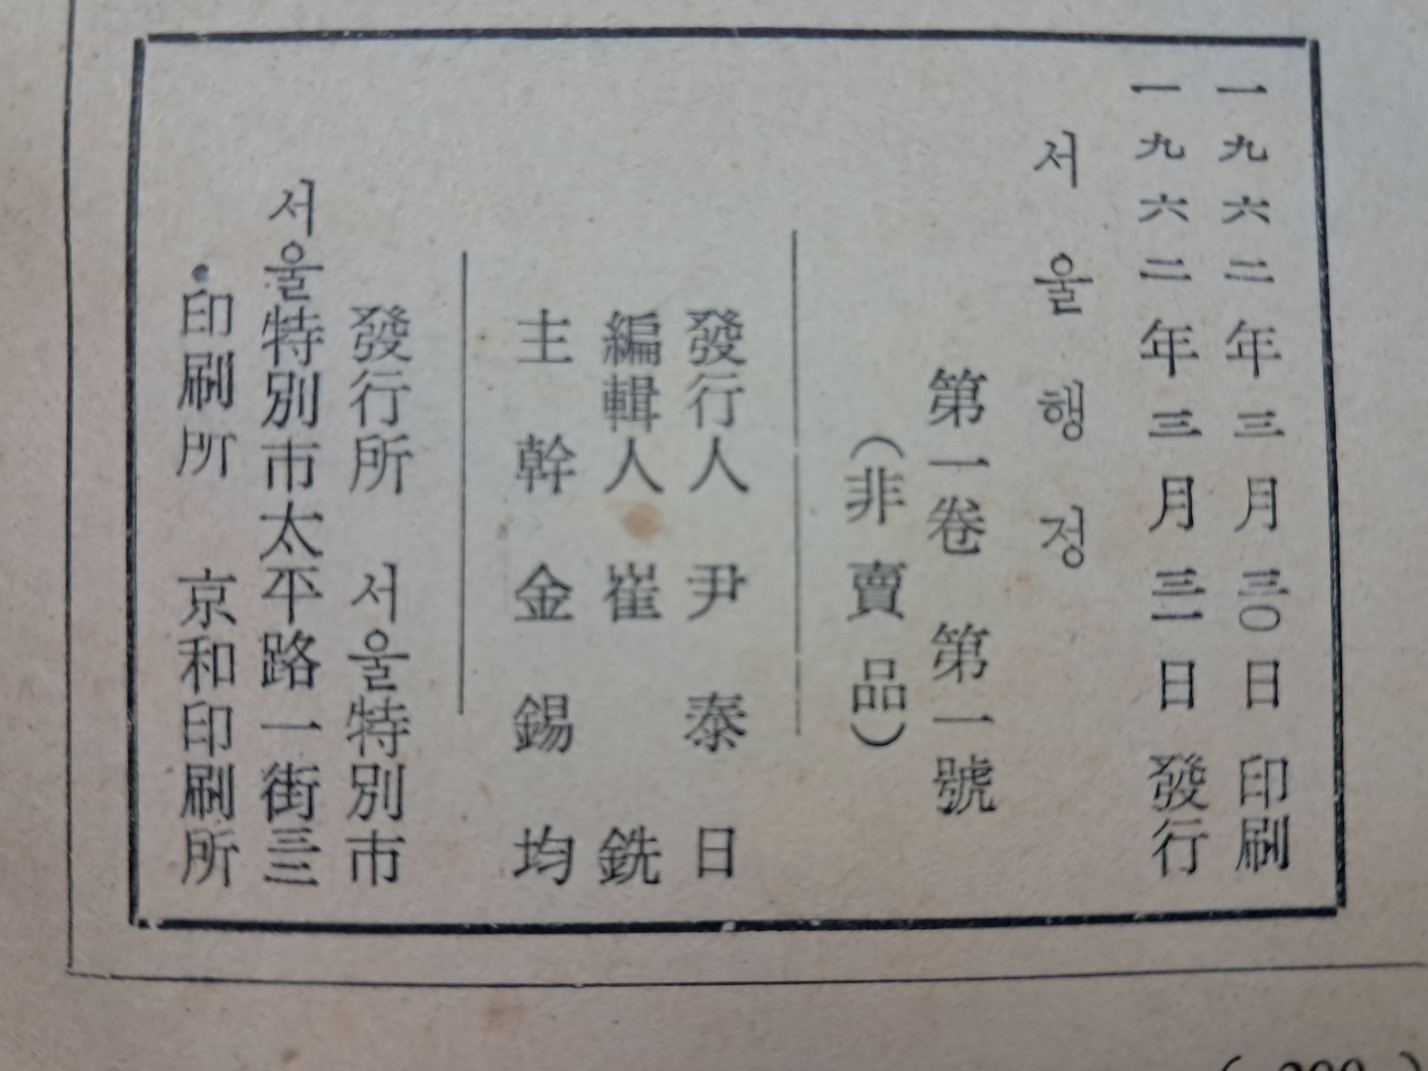 一九六二年三月三〇日 印刷
一九六二年三月三一日 發行
서울행정
第一卷 第一號
(非賣品)
發行人 尹泰日
編輯人 崔銑
主幹 金錫均
發行所 서울特別市
서울特別市太平路一街三三
印刷所 京和印刷所